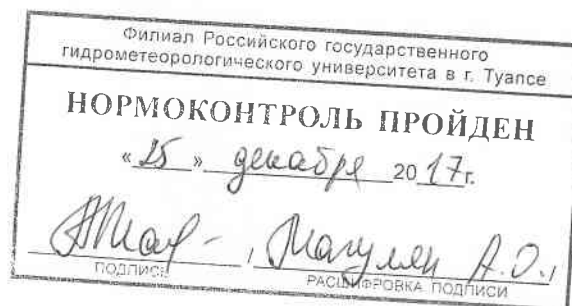 Филиал Российского государственного
гидрометеорологического университета в г. Туапсе
НОРМОКОНТРОЛЬ ПРОЙДЕН
« 25 » декабря 2017г.
ПОДПИСЬ РАСШИФРОВКА ПОДПИСИ